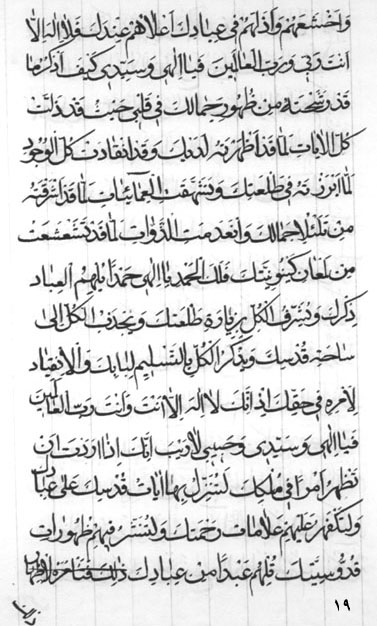 واخشعهم واذلهم فی عبادك اعلاهم عندك فلا اله الا
انت ربی ورب العالمین فیا الهی وسیدی كیف اذكر ما
قد رشحت من ظهور جمالك فی قلبی حیث قد ذلت
كل الایات لما قد اظهرته لدیك وقد انقادت كل الوجود
لما ابرزته فی طلعتك وتشهقت العمائیات لما قد اشرقته
من تلئلا جمالك وانعدمت الذوات لما قد تشعشعت
من لمعان كینونیتك فلك الحمد یا الهی حمدا یلهم العباد
ذكرك ویشرف الكل بزیارة طلعتك ویجذب الكل الی
ساحة قدسك ویذكر الكل بالتسلیم لبابك والانقیاد
لامره فی حقك اذ انك لا اله الا انت وانت رب العالمین
فیا الهی وسیدی وحبیبی لاریب انك اذا اردت ان
تظهر امرا فی ملكك لتنزل بها ایات قدسك علی عبادك
ولتكفهر علیهم علامات رحمتك ولتستر فیهم ظهورات
قدوسیتك قلهم عبدا من عبادك
١٩